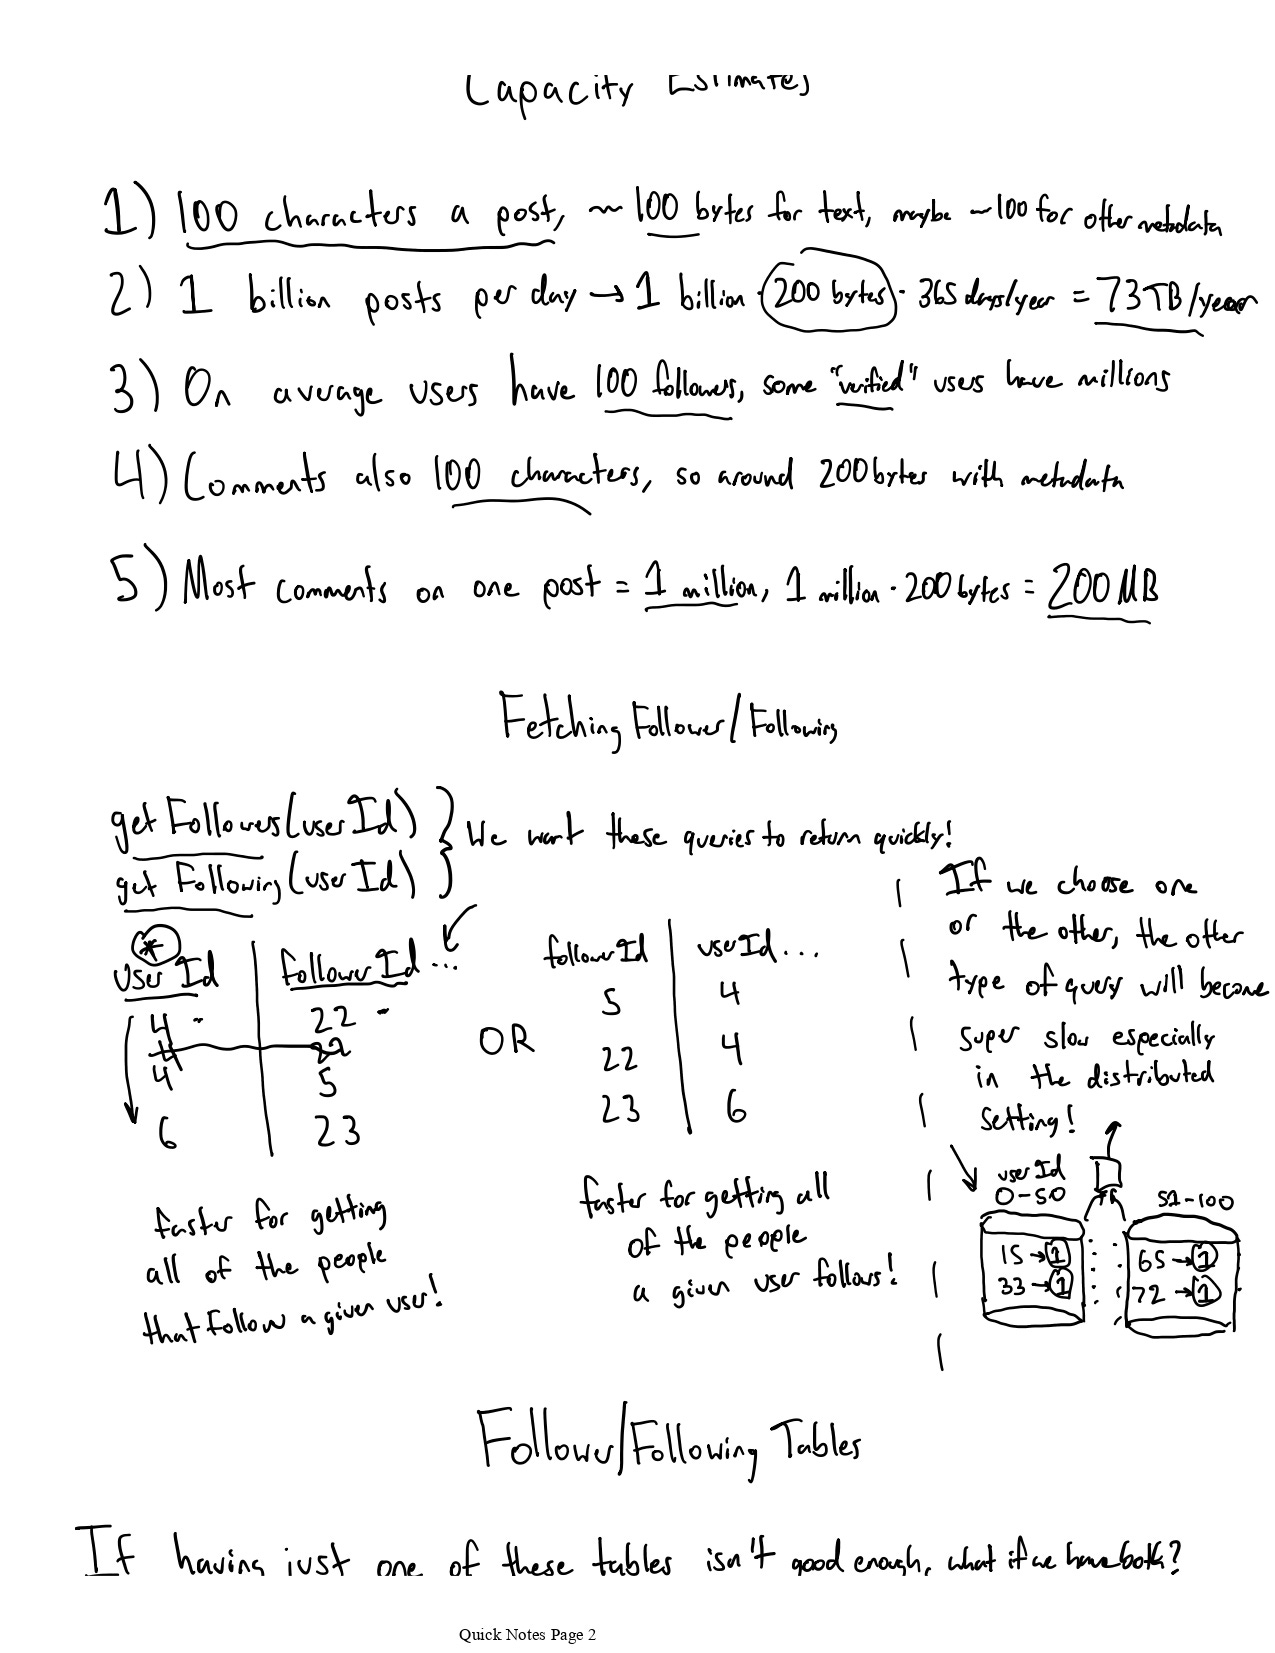 Capacity Estimates
1) 100 characters a post, ~100 bytes for text, maybe ~100 for other metadata
2) 1 billion posts per day → 1 billion · 200 bytes · 365 days/year = 73TB/year
3) On average users have 100 followers, some "verified" users have millions
4) Comments also 100 characters, so around 200 bytes with metadata
5) Most comments on one post = 1 million, 1 million · 200 bytes = 200 MB
Fetching Follower/Following
getFollowers(userId)
getFollowing(userId)
} We want these queries to return quickly!
*
userId | followerId...
4 - | 22 -
4 | 22
4 | 5
6 | 23
faster for getting
all of the people
that follow a given user!
OR
followerId | userId...
5 | 4
22 | 4
23 | 6
faster for getting all
of the people
a given user follows!
If we choose one
or the other, the other
type of query will become
super slow especially
in the distributed
setting!
userId
0-50
51-100
15→1
33→1
65→1
72→1
Follower/Following Tables
If having just one of these tables isn't good enough, what if we have both?
Quick Notes Page 2